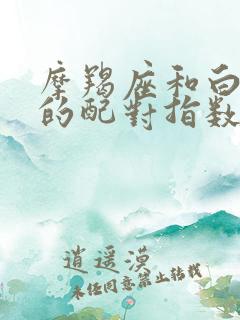 摩羯座和白
的配對指數
逍遥漠
未经同意禁止转载